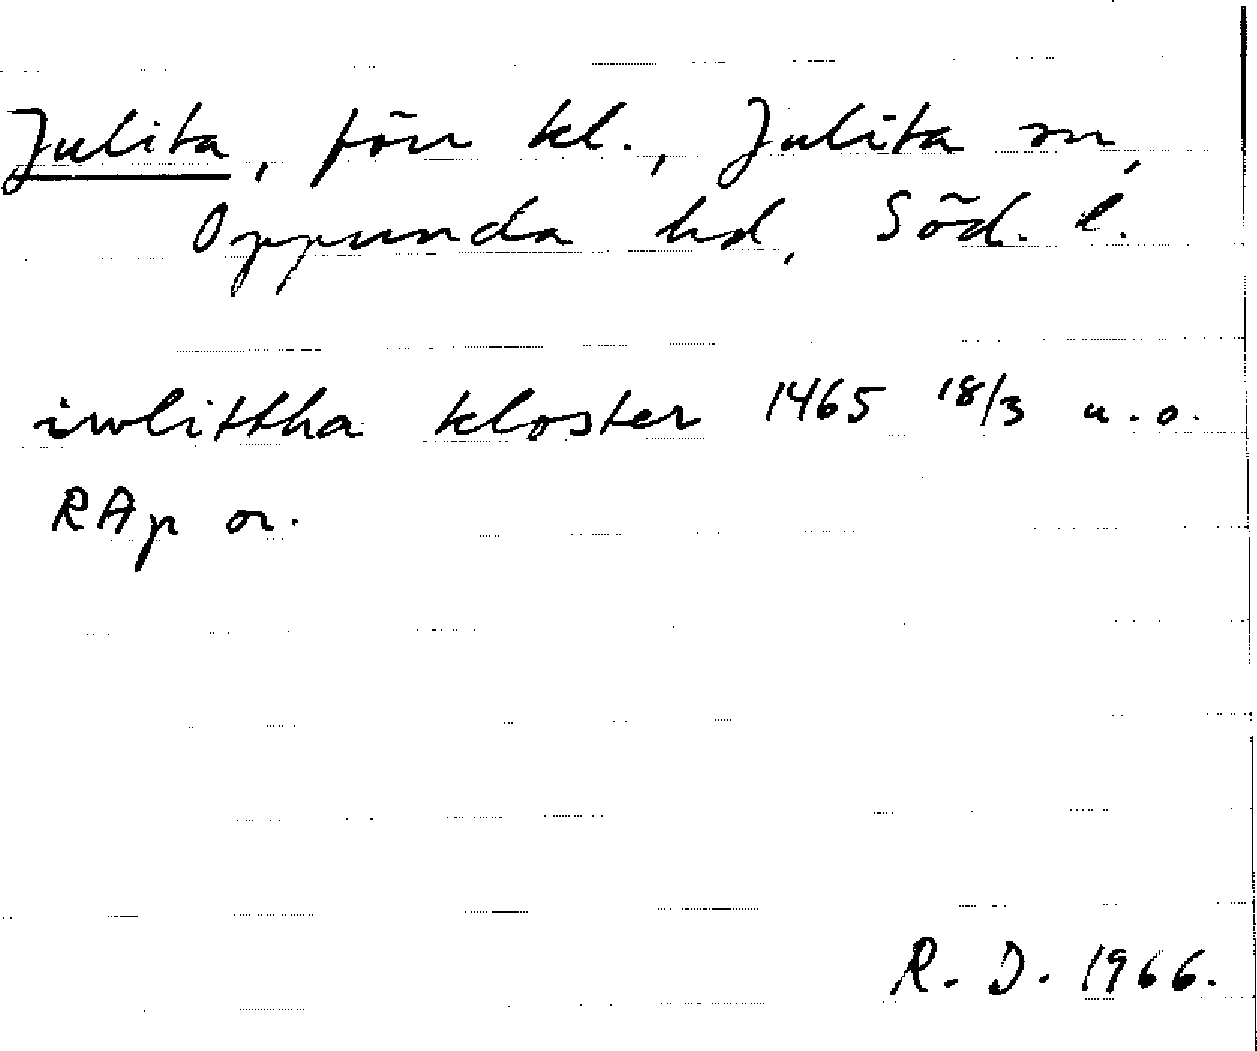 Julita, förr kl., Julita sn,
Oppunda hd, Söd. l.
iwlittha kloster 1465 18/3 u.o.
RAp or.
R. D. 1966.